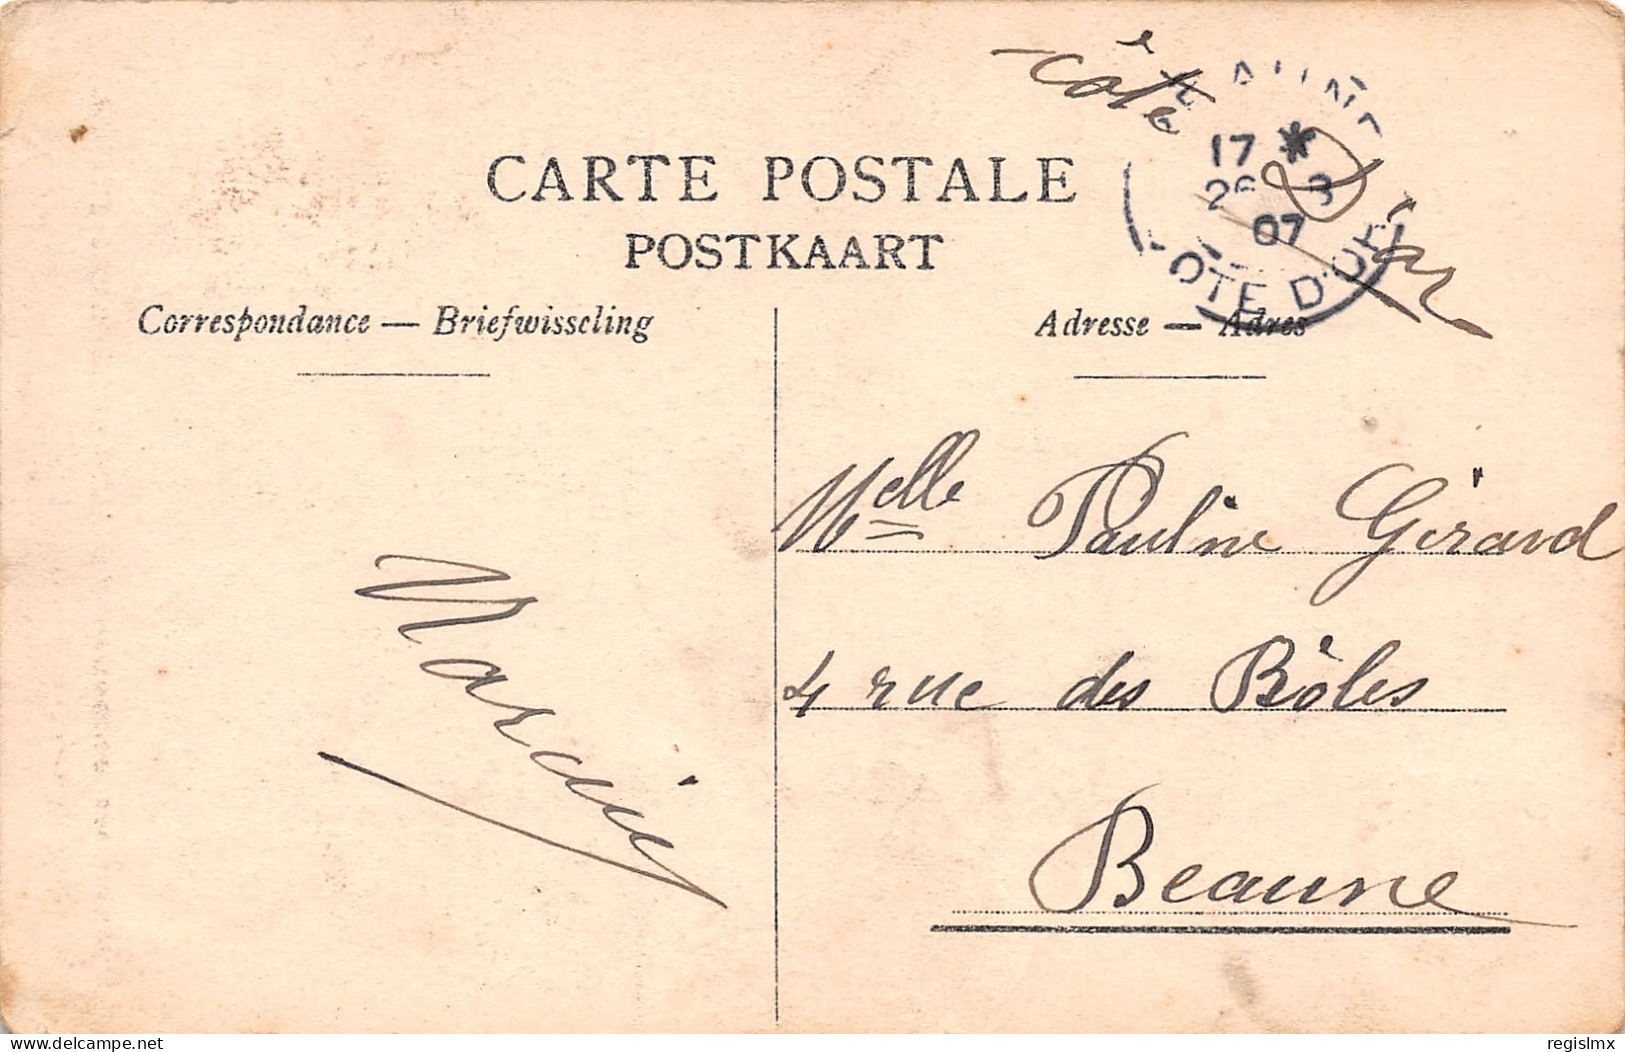 Côte d'Or
BEAUNE
17 * 26 3
07
COTE D'OR
CARTE POSTALE
POSTKAART
Correspondance — Briefwisseling
Adresse — Adres
Melle Pauline Girard
4 rue des Bôles
Beaune
delcampe.net
regislmx